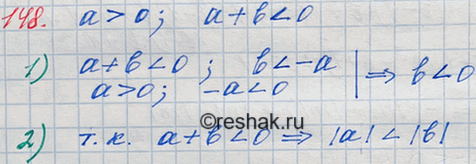 148. a > 0; a + b < 0
1) a + b < 0; b < -a
a > 0; -a < 0 | ⇒ b < 0
©reshak.ru
2) т.к. a + b < 0 ⇒ |a| < |b|